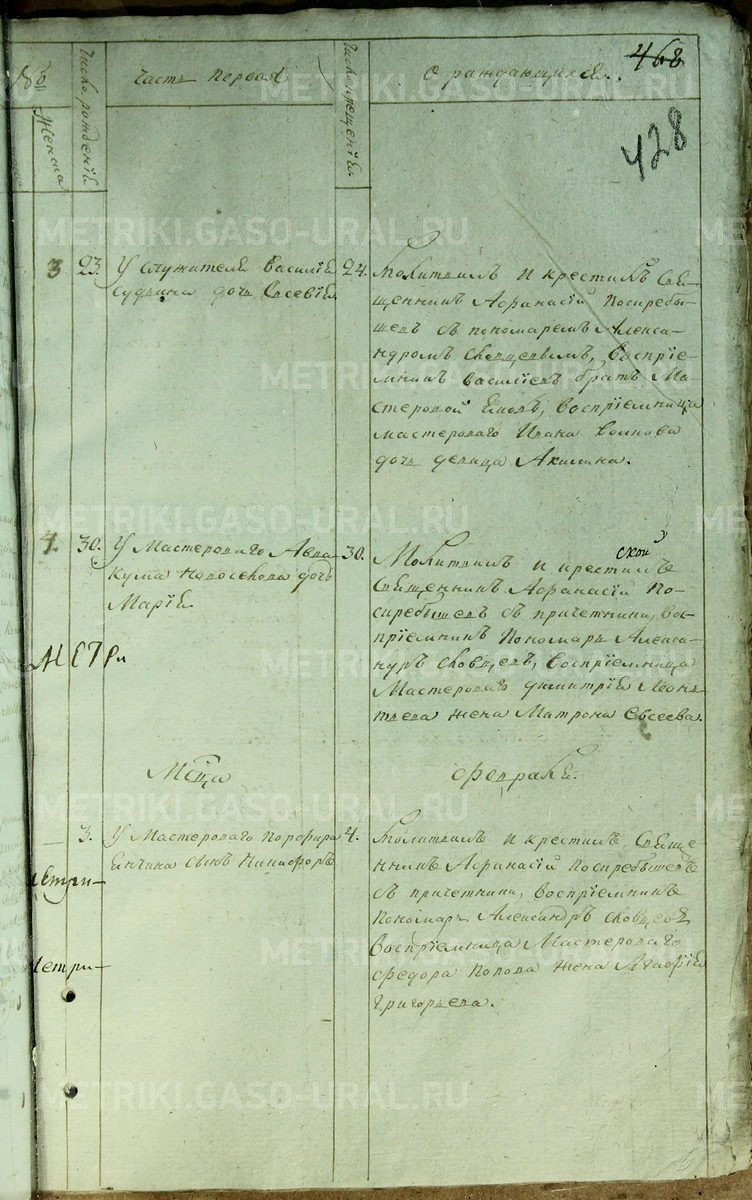 468
428
№
Женска
Число рожденїе
Часть первая
Число крещенїя
О раждающихся.
3
23.
У служителя Василїя
Судьина дочь Евсевїя
24.
Молитвилъ и крестилъ Свя-
щенникъ Афанасїй Поскребы-
шевъ съ пономаремъ Алекса-
ндромъ Сковцевымъ, воспрїе-
мникъ Василїевъ братъ Ма-
стеровой восприемница
мастероваго Ивана
дочь девица Акилина.
4.
30.
У Мастероваго Авва-
кума Новоселова дочь
Марїя
30.
Молитвилъ и крестилъ
ской
Священникъ Афанасїй По-
скребышевъ съ причетники, вос-
прїемникъ Пономарь Алекса-
ндръ Сковцевъ, восприемница
Мастероваго Димитрїя Леонь-
тьева жена Матрона Евсеева.
Метри
Мсца
Февраля.
3.
У Мастероваго Порфира
сынъ Никифоръ
4.
Молитвилъ и крестилъ Свяще-
нникъ Афанасїй Поскребышевъ
съ причетники, воспрїемникъ
Пономарь Александръ Сковцевъ
Воспрїемница Мастероваго
Федора Попова жена Агафїя
Григорьева.
метри-
Метри-
METRIKI.GASO-URAL.RU